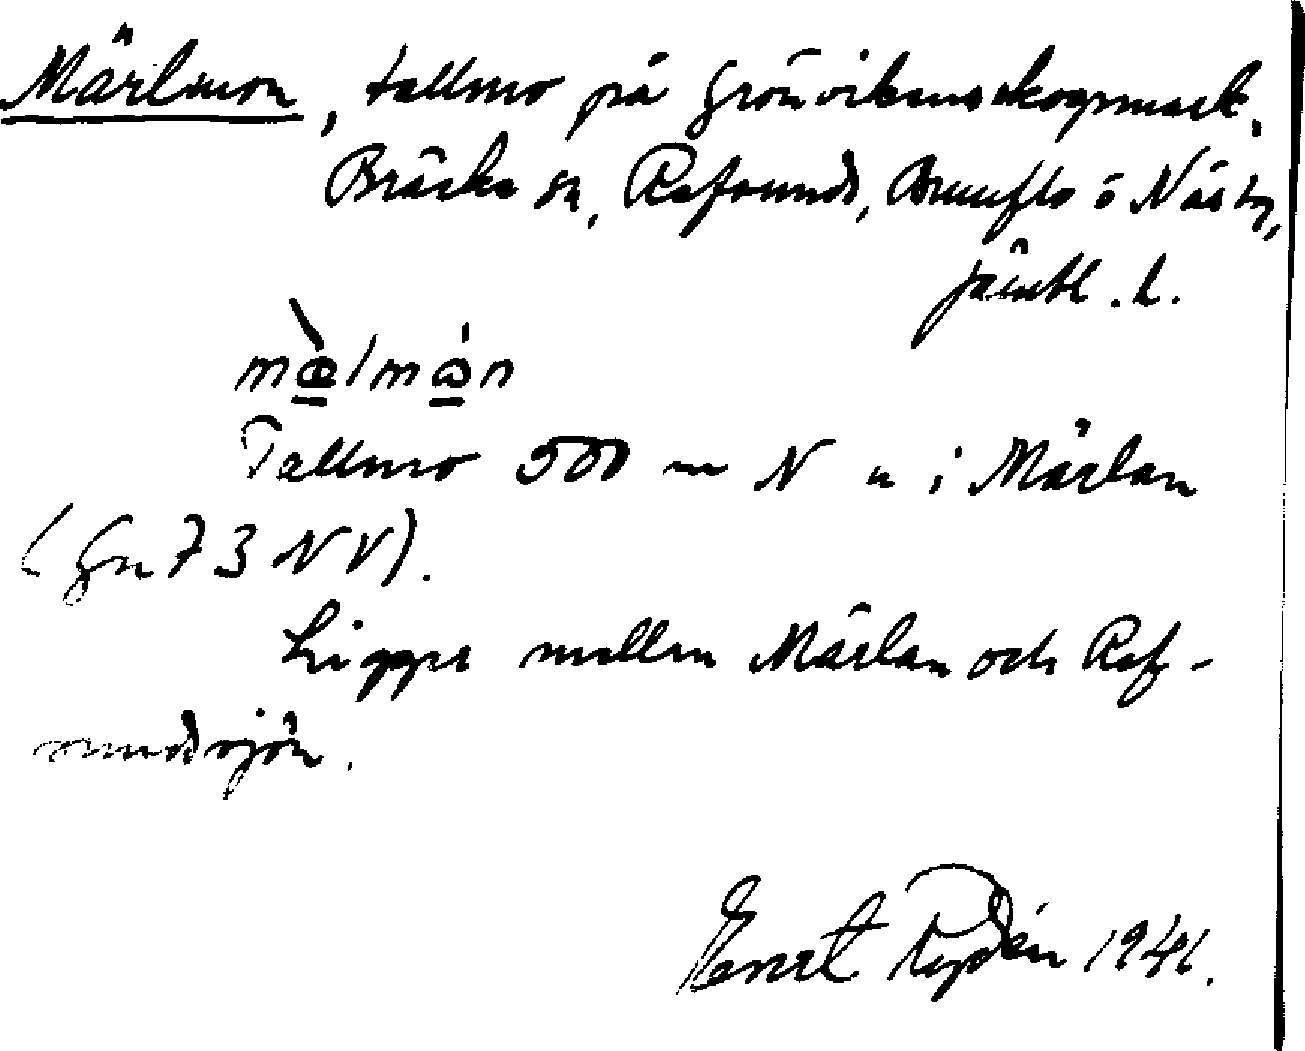 Märlmon, tallmo på Grönvikens skogsmark.
Bräcke sn, Refsunds, Brunflo o Näs tg,
Jämtl. l.
mæ̀lmón
Tallmo 500 m N u i Märlan
(Gn 73 NV).
Ligger mellan Märlan och Ref-
sundssjön.
Ernst Rydén 1941.